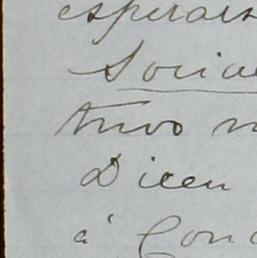 esperais
Socia
tuvo n
Dicen
á Con